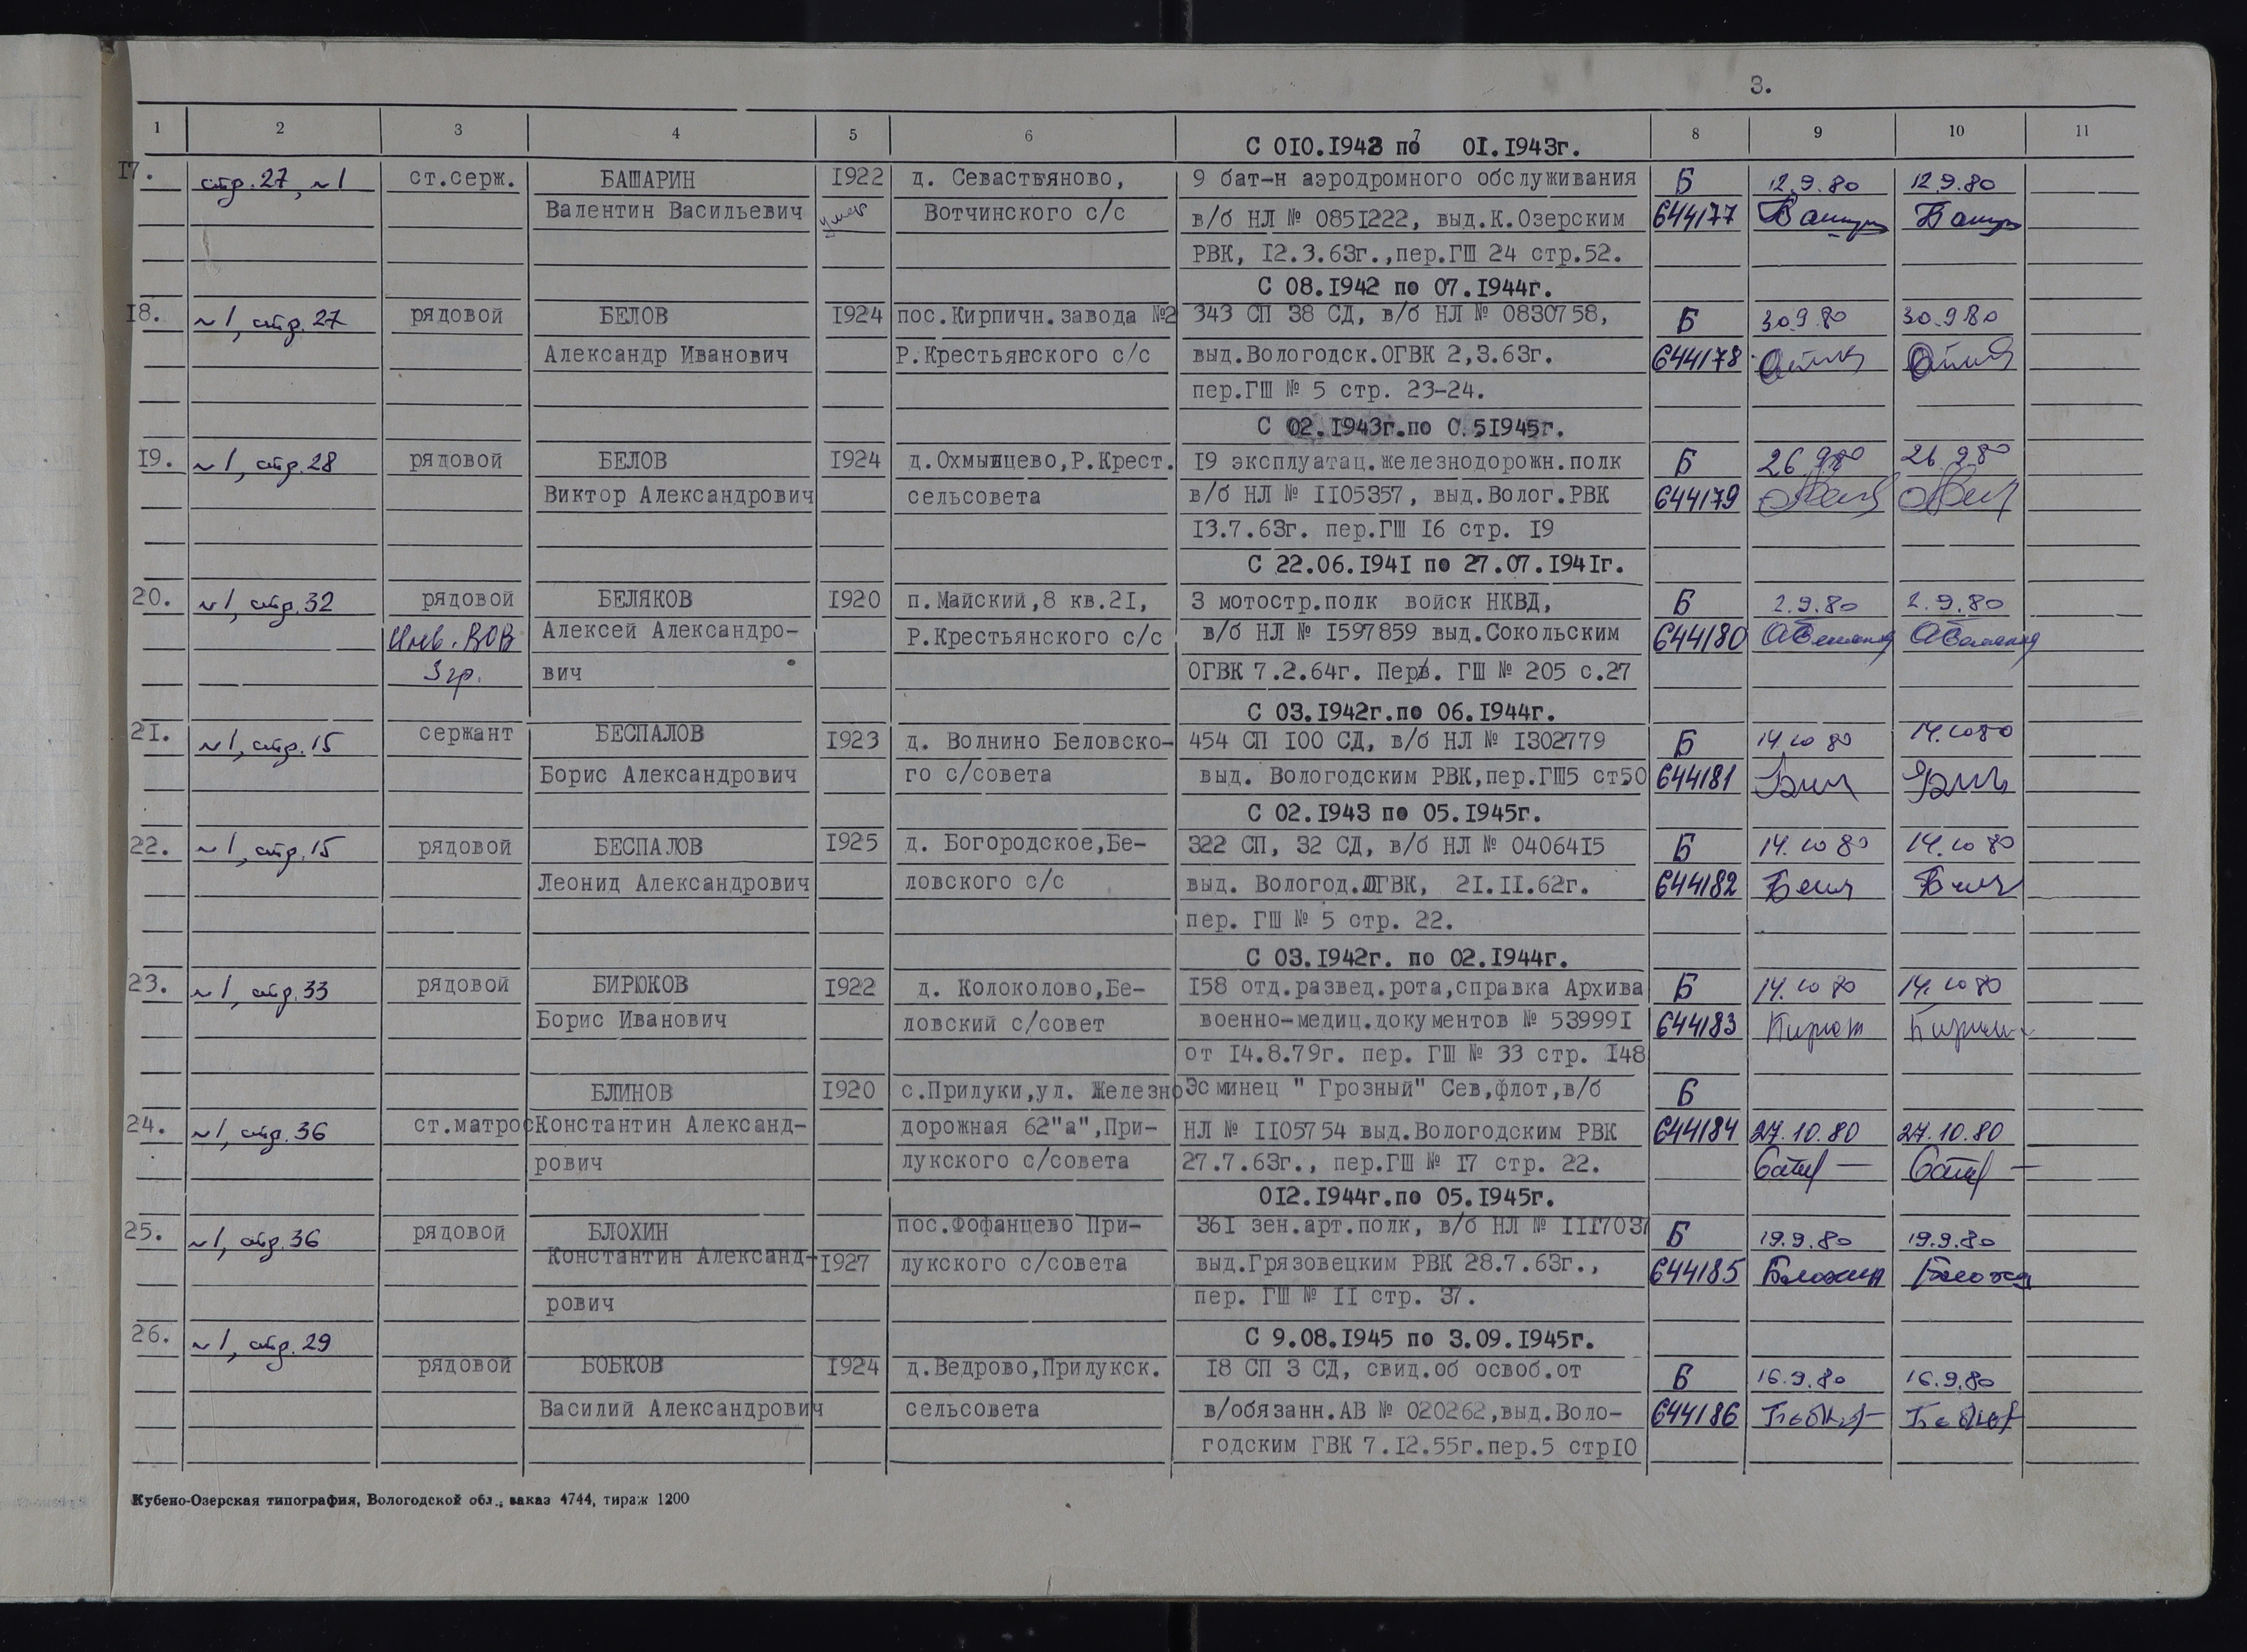 3.
1 2 3 4 5 6 7 8 9 10 11
С 010.1943 по 01.1943г.
17. стр.27, №1 ст.серж. БАШАРИН 1922 д. Севастьяново, 9 бат-н аэродромного обслуживания Б 12.9.80 12.9.80
Валентин Васильевич умер Вотчинского с/с в/б НЛ № 0851222, выд.К.Озерским 644177
РВК, 12.3.63г.,пер.ГШ 24 стр.52.
С 08.1942 по 07.1944г.
18. №1, стр.27 рядовой БЕЛОВ 1924 пос.Кирпичн.завода №2 343 СП 38 СД, в/б НЛ № 0830758, Б 30.9.80 30.9.80
Александр Иванович Р.Крестьянского с/с выд.Вологодск.ОГВК 2,3.63г. 644178
пер.ГШ № 5 стр. 23-24.
С 02.1943г.по 0.51945г.
19. №1, стр.28 рядовой БЕЛОВ 1924 д.Охмыльцево,Р.Крест. 19 эксплуатац.железнодорожн.полк Б 26.9.80 26.9.80
Виктор Александрович сельсовета в/б НЛ № 1105357, выд.Волог.РВК 644179
13.7.63г. пер.ГШ 16 стр. 19
С 22.06.1941 по 27.07.1941г.
20. №1, стр.32 рядовой БЕЛЯКОВ 1920 п.Майский,8 кв.21, 3 мотостр.полк войск НКВД, Б 2.9.80 2.9.80
Инв. ВОВ Алексей Александро- Р.Крестьянского с/с в/б НЛ № 1597859 выд.Сокольским 644180
3 гр. вич ОГВК 7.2.64г. Перв. ГШ № 205 с.27
С 03.1942г.по 06.1944г.
21. №1, стр.15 сержант БЕСПАЛОВ 1923 д. Волнино Беловско- 454 СП 100 СД, в/б НЛ № 1302779 Б 14.10 80 14.10 80
Борис Александрович го с/совета выд. Вологодским РВК,пер.ГШ5 ст50 644181
С 02.1943 по 05.1945г.
22. №1, стр.15 рядовой БЕСПАЛОВ 1925 д. Богородское,Бе- 322 СП, 32 СД, в/б НЛ № 0406415 Б 14.10 80 14.10 80
Леонид Александрович ловского с/с выд. Вологод.ОГВК, 21.11.62г. 644182
пер. ГШ № 5 стр. 22.
С 03.1942г. по 02.1944г.
23. №1, стр.33 рядовой БИРЮКОВ 1922 д. Колоколово,Бе- 158 отд.развед.рота,справка Архива Б 14.10 80 14.10 80
Борис Иванович ловский с/совет военно-медиц.документов № 539991 644183
от 14.8.79г. пер. ГШ № 33 стр. 148
БЛИНОВ 1920 с.Прилуки,ул. Железно Эсминец " Грозный" Сев,флот,в/б Б
24. №1, стр.36 ст.матрос Константин Александ- дорожная 62"а",При- НЛ № 1105754 выд.Вологодским РВК 644184 27.10.80 27.10.80
рович лукского с/совета 27.7.63г., пер.ГШ № 17 стр. 22.
012.1944г.по 05.1945г.
25. №1, стр.36 рядовой БЛОХИН пос.Фофанцево При- 361 зен.арт.полк, в/б НЛ № 1117037 Б 19.9.80 19.9.80
Константин Александ- 1927 лукского с/совета выд.Грязовецким РВК 28.7.63г., 644185 Блохин
рович пер. ГШ № 11 стр. 37.
26. №1, стр.29 С 9.08.1945 по 3.09.1945г.
рядовой БОБКОВ 1924 д.Ведрово,Прилукск. 18 СП 3 СД, свид.об освоб.от Б 16.9.80 16.9.80
Василий Александрович сельсовета в/обязанн.АВ № 020262,выд.Воло- 644186
годским ГВК 7.12.55г.пер.5 стр10
Кубено-Озерская типография, Вологодской обл., заказ 4744, тираж 1200